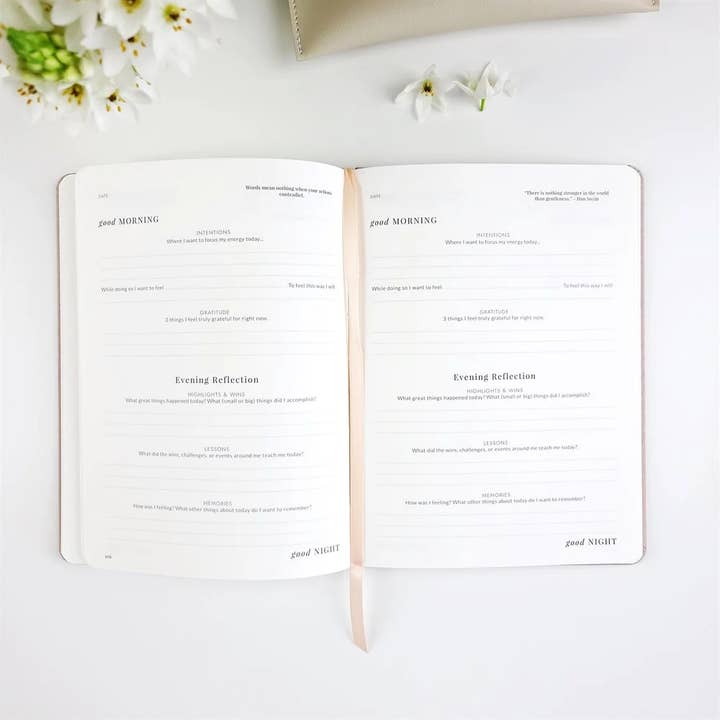 DATE
Words mean nothing when your actions
contradict.
good MORNING
INTENTIONS
Where I want to focus my energy today...
While doing so I want to feel
To feel this way I will
GRATITUDE
3 things I feel truly grateful for right now.
Evening Reflection
HIGHLIGHTS & WINS
What great things happened today? What (small or big) things did I accomplish?
LESSONS
What did the wins, challenges, or events around me teach me today?
MEMORIES
How was I feeling? What other things about today do I want to remember?
good NIGHT
DATE
"There is nothing stronger in the world
than gentleness." - Han Suyin
good MORNING
INTENTIONS
Where I want to focus my energy today...
While doing so I want to feel
To feel this way I will
GRATITUDE
3 things I feel truly grateful for right now.
Evening Reflection
HIGHLIGHTS & WINS
What great things happened today? What (small or big) things did I accomplish?
LESSONS
What did the wins, challenges, or events around me teach me today?
MEMORIES
How was I feeling? What other things about today do I want to remember?
good NIGHT